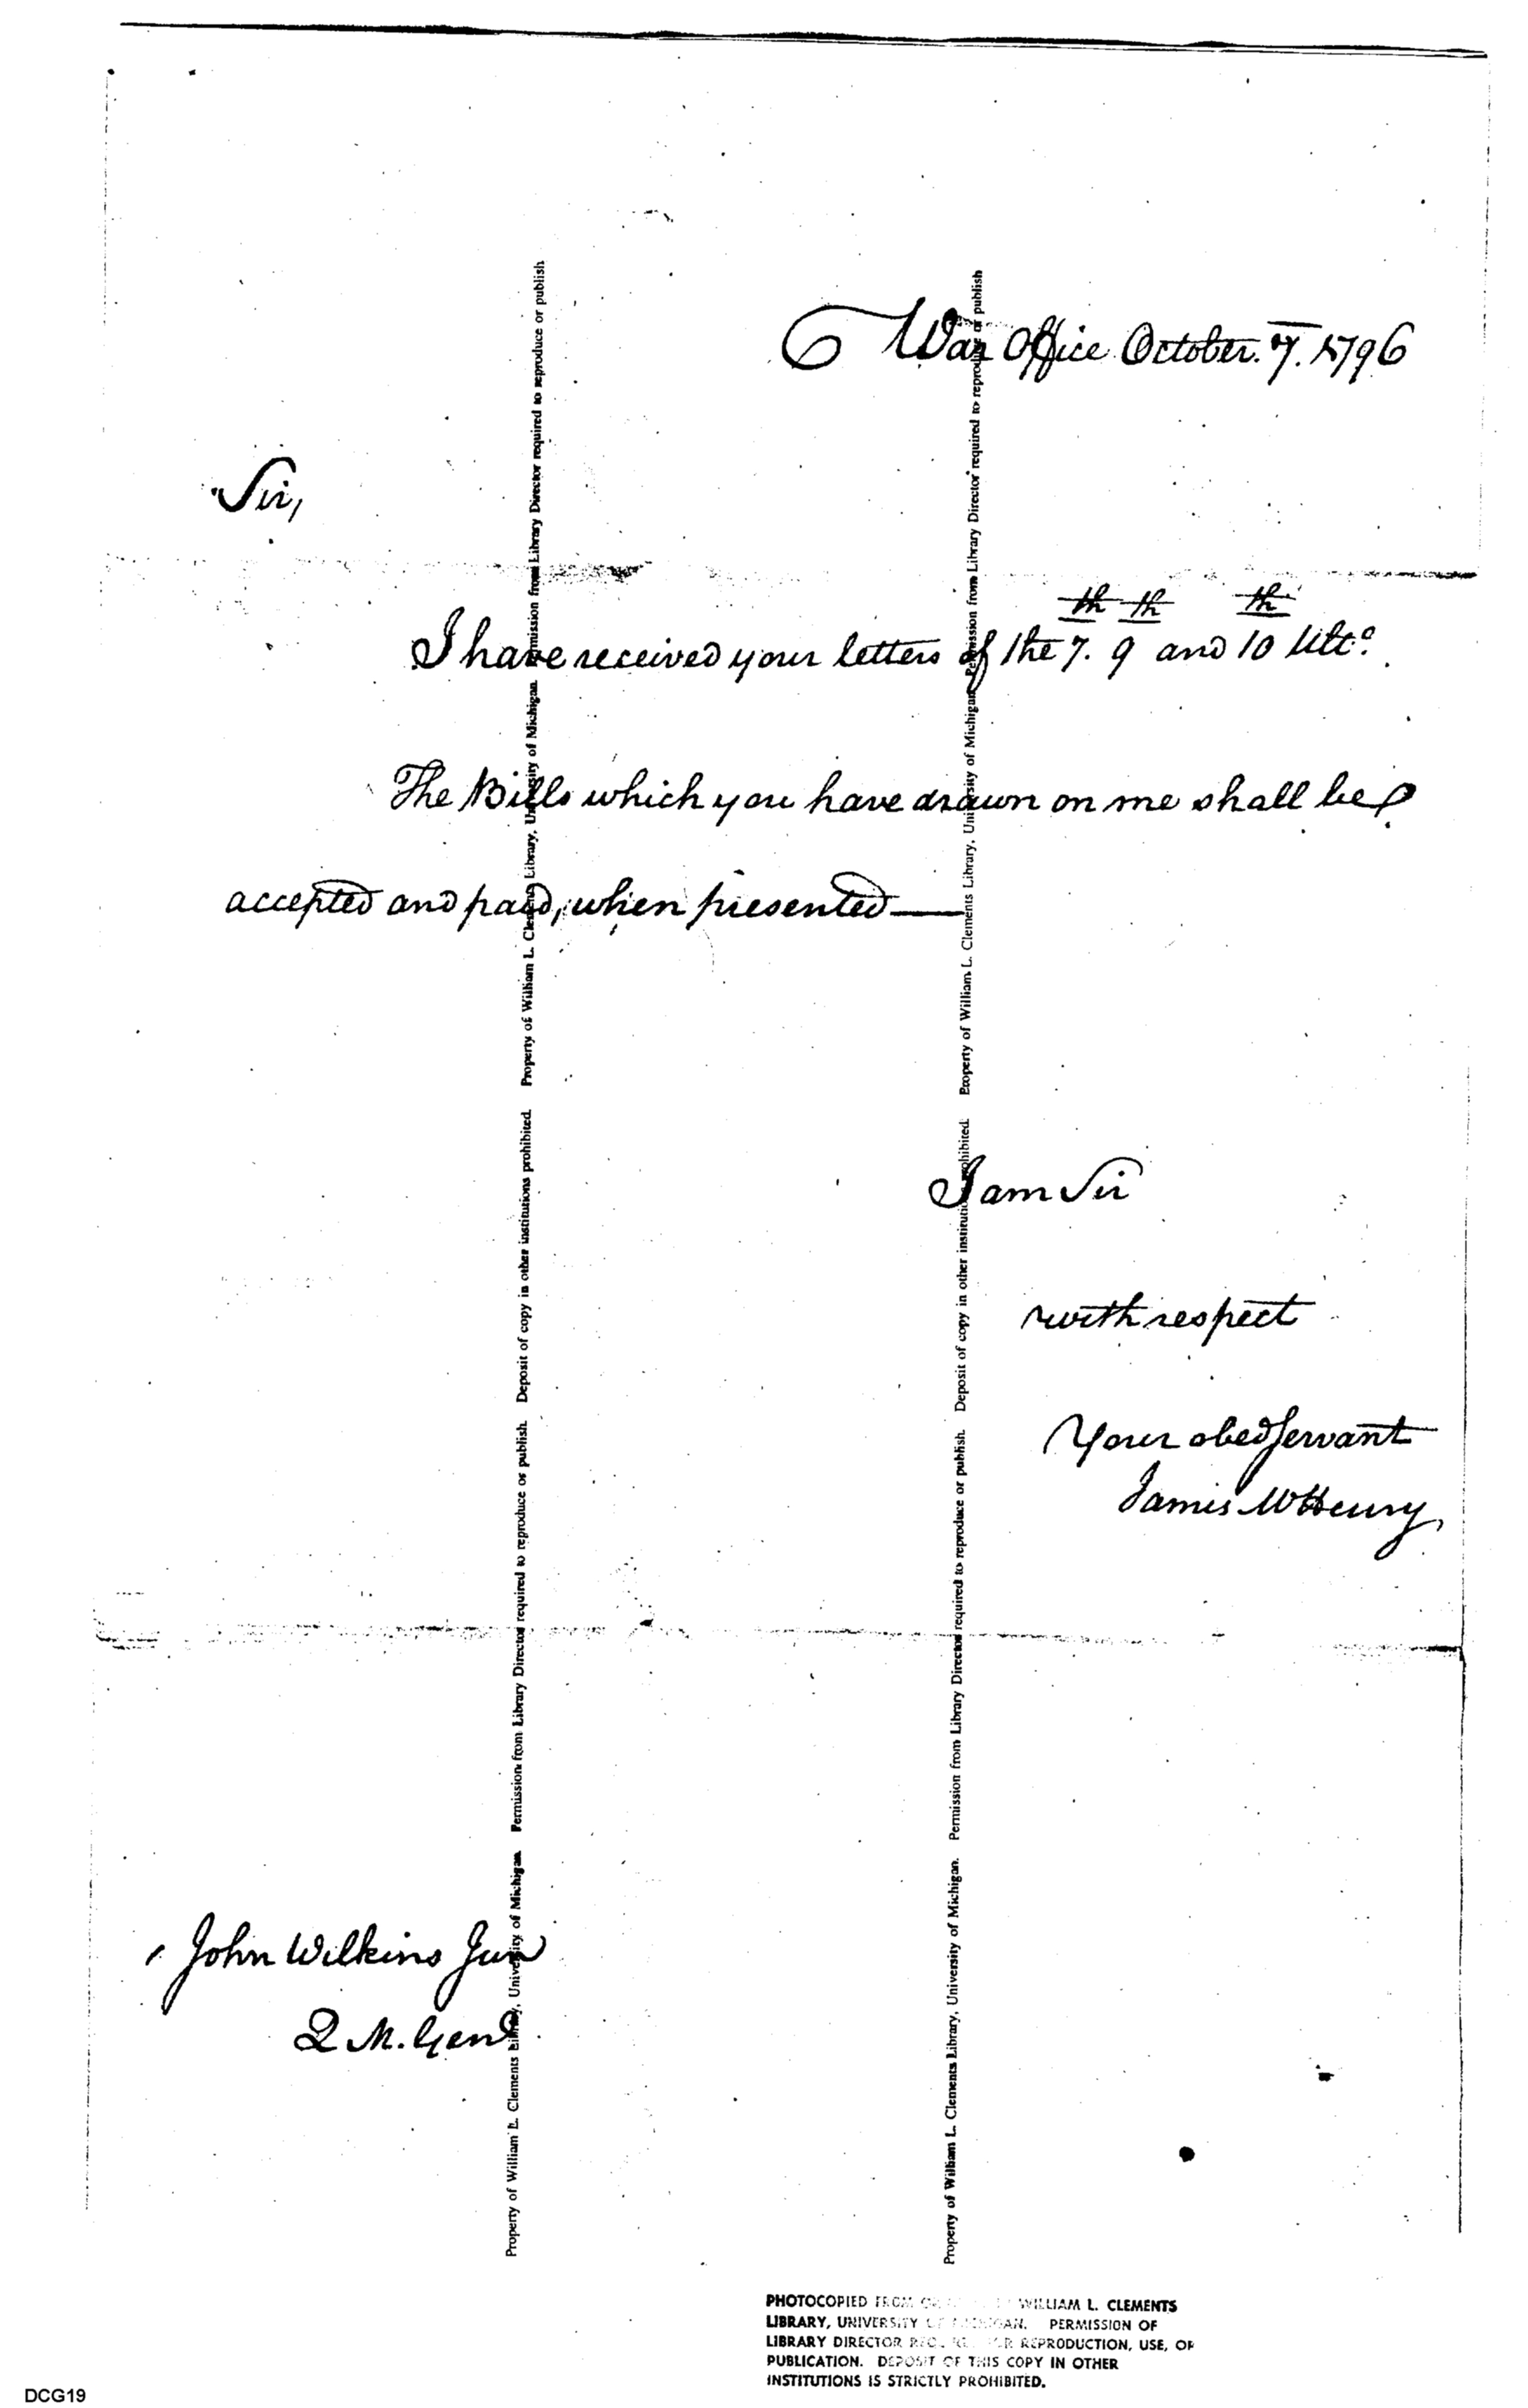 War Office October. 7. 1796
Sir,
I have received your letters of the 7.th 9th and 10th Ulto.
The Bills which you have drawn on me shall be
accepted and paid, when presented—
I am Sir
with respect
Your obed Servant
James McHenry
John Wilkins Jun
Q M. Genl
Property of William L. Clements Library, University of Michigan. Permission from Library Director required to reproduce or publish. Deposit of copy in other institutions prohibited. Property of William L. Clements Library, University of Michigan. Permission from Library Director required to reproduce or publish
Property of William L. Clements Library, University of Michigan. Permission from Library Director required to reproduce or publish. Deposit of copy in other institutions prohibited. Property of William L. Clements Library, University of Michigan. Permission from Library Director required to reproduce or publish
PHOTOCOPIED FROM WILLIAM L. CLEMENTS
LIBRARY, UNIVERSITY OF MICHIGAN. PERMISSION OF
LIBRARY DIRECTOR REQUIRED FOR REPRODUCTION, USE, OR
PUBLICATION. DEPOSIT OF THIS COPY IN OTHER
INSTITUTIONS IS STRICTLY PROHIBITED.
DCG19